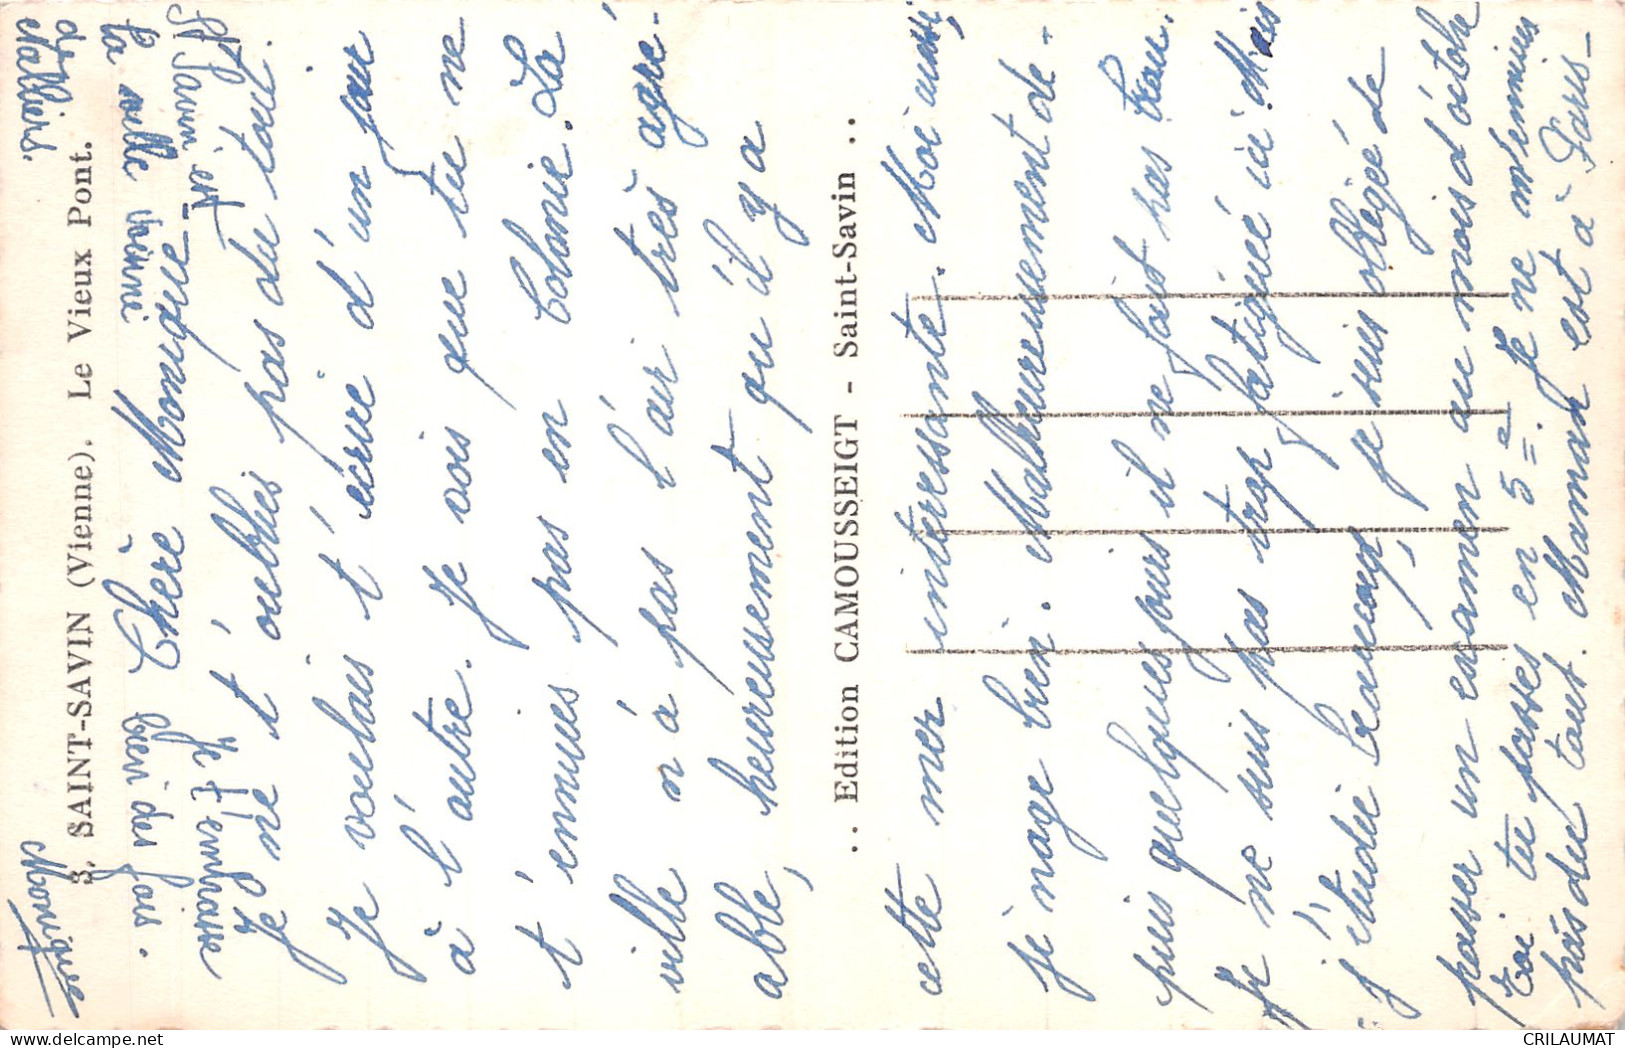 St Savin est
la ville voisine
de
Nalliers.
3. SAINT-SAVIN (Vienne). Le Vieux Pont.
Chère Monique
Je ne t'oublies pas du tout.
Je voulais t'écrire d'un jour
à l'autre. Je vois que tu ne
t'ennuies pas en Colonie. La
ville n'à pas l'air très agré-
able, heureusement qu'il y a
.. Edition CAMOUSSEIGT - Saint-Savin ..
cette mer intéressante. Moi aussi,
je nage bien. Malheureusement de-
puis quelques jours il ne fait pas beau.
Je ne suis pas trop fatiguée ici Mais
j'étudie beaucoup, je suis obligée de
passer un examen au mois d'octobre
toi tu passes en 5e. Je ne m'ennuies
pas du tout. Maman est à Paris-
Je t'embrasse
bien des fois.
Monique
CRILAUMAT